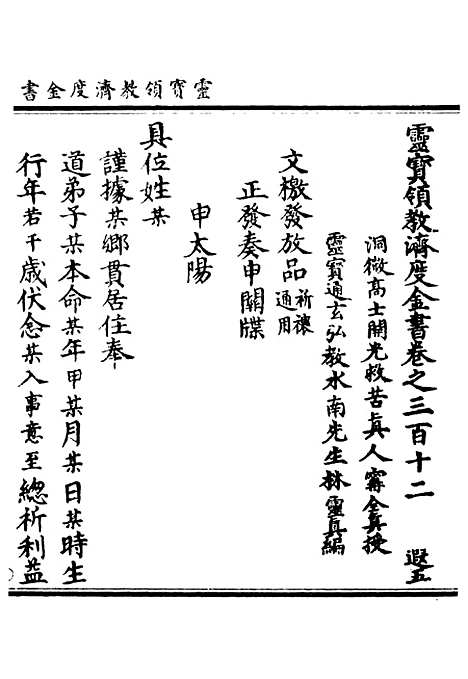 靈寶領教濟度金書
靈寶領教濟度金書卷之三百十二 遐五
洞微高士開光救苦眞人甯全眞授
靈寶通玄弘教水南先生林靈眞編
文檄發放品祈禳通用
正發奏申關牒
申太陽
具位姓某
謹據某鄉貫居住奉
道弟子某本命某年甲某月某日某時生
行年若干歲伏念某入事意至總祈利益